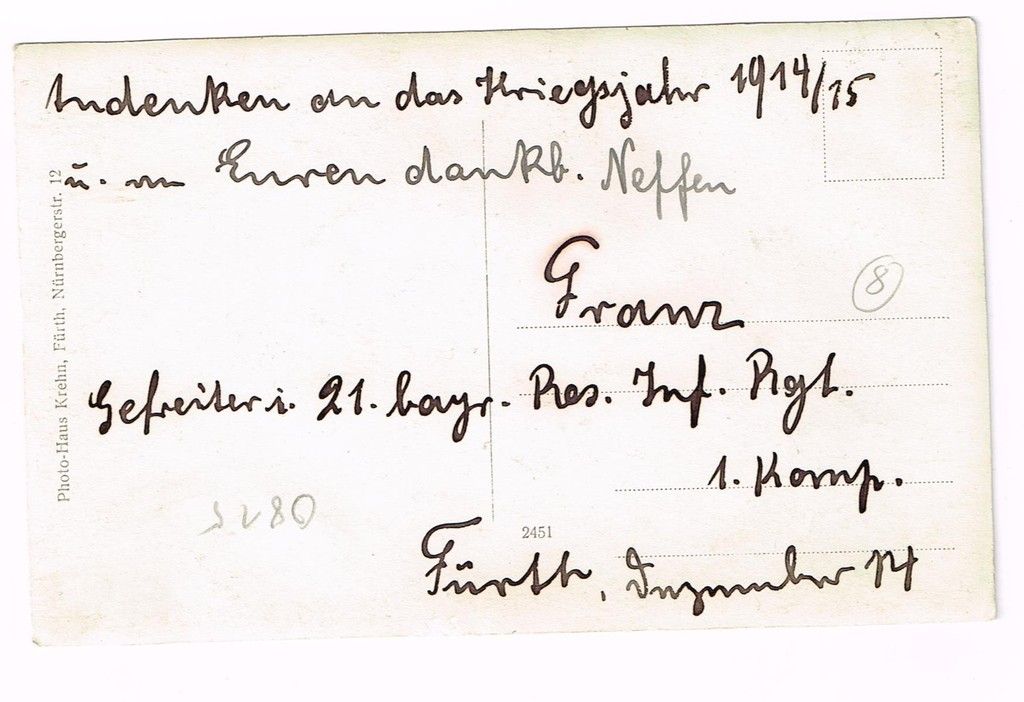 Andenken an das Kriegsjahr 1914/15
u. an Euren dankb. Neffen
Franz
8
Gefreiter i. 21. bayr. Res. Inf. Rgt.
1. Komp.
2451
Fürth, Dezember 14
Photo-Haus Krehn, Fürth, Nürnbergerstr. 12